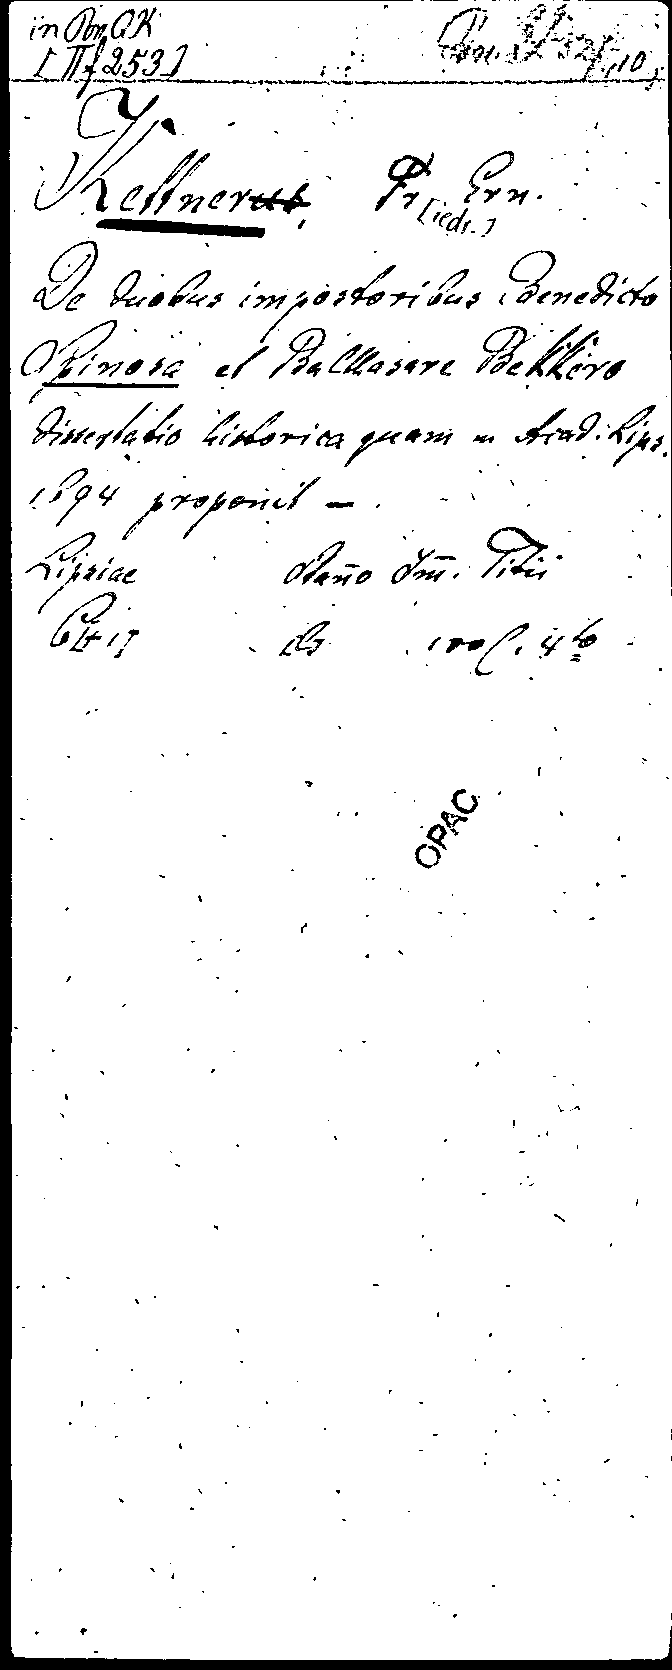 in Pon QK
[IIf 253]
Kettnerus, Fr[iedr.] Ern.
De duobus impostoribus Benedicto
Spinosa et Balthasare Bekkero
dissertatio historica quam in Acad. Lips.
1694 proponit —.
Lipsiae Im. Titii
4to
OPAC